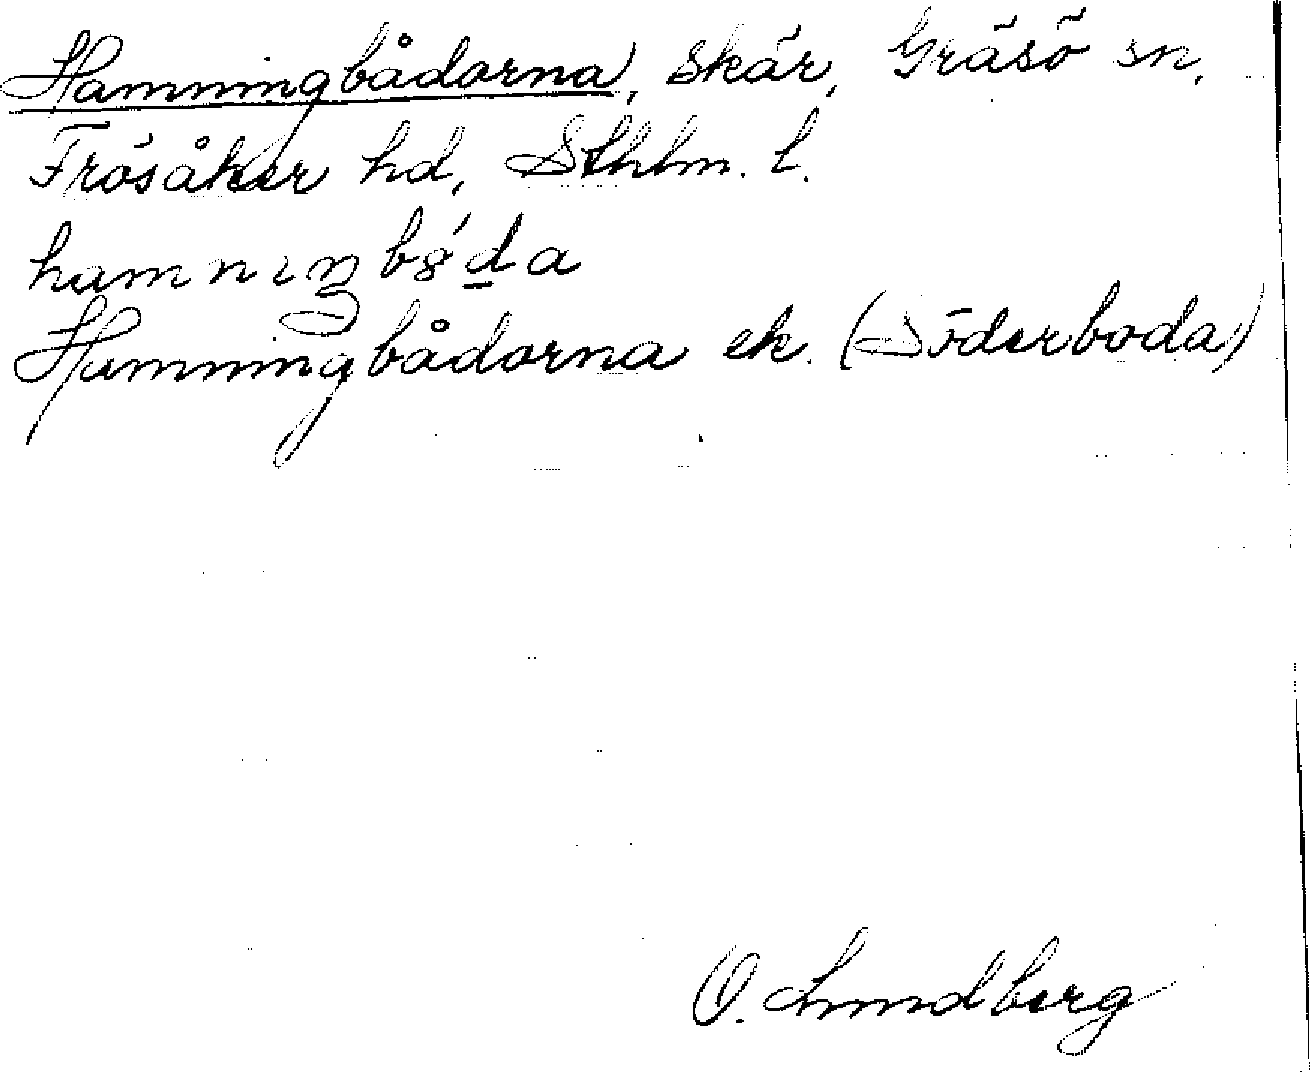 Hamningbådorna, skär, Gräsö sn,
Frösåker hd, Sthlm. l.
hamnıŋb8́d̲a
Hamningbådorna ek. (Söderboda)
O. Lundberg